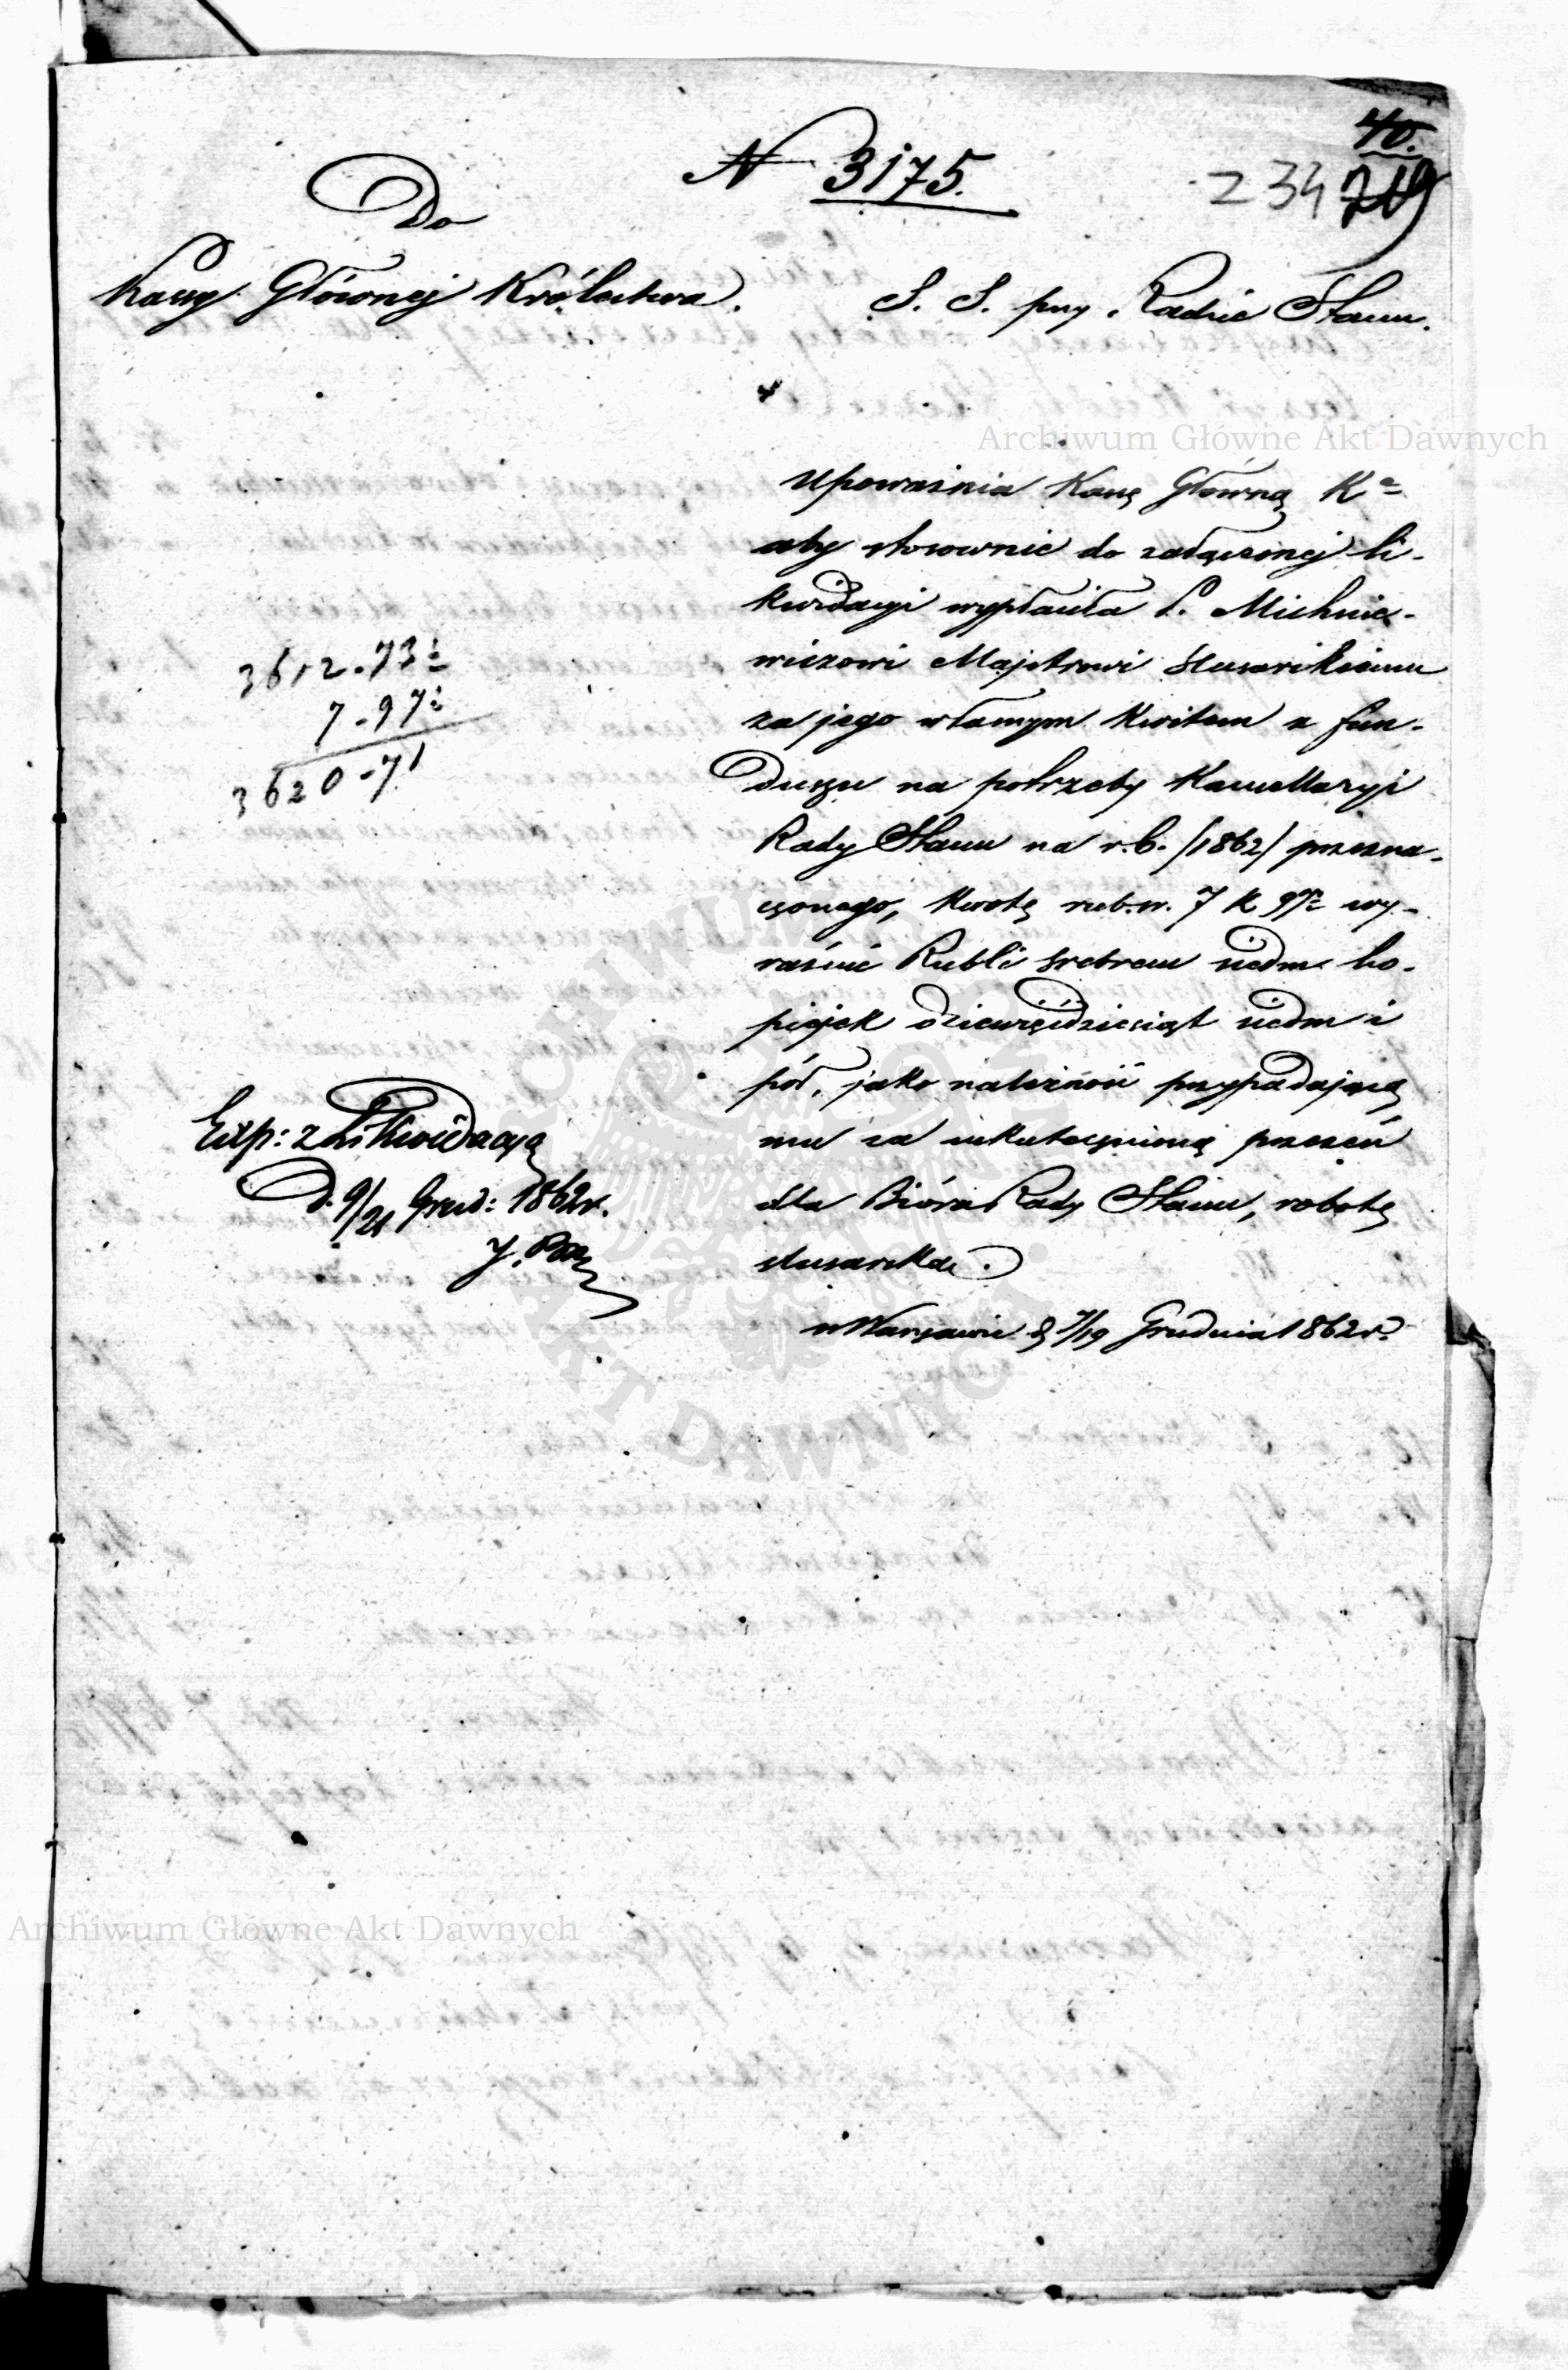 40.
N 3175.
234 219
Do
Kassy Głównej Królestwa.
S. S. przy Radzie Stanu.
Archiwum Główne Akt Dawnych
Upoważnia Kassę Główną Kª
aby stosownie do załączonej li-
kwidacyi wypłaciła P. Michnie-
wiczowi Majstrowi Slusarskiemu
za jego własnym kwitem z fun-
duszu na potrzeby Kancellaryi
Rady Stanu na r. b. /1862/ przezna-
czonego, kwotę rub. sr. 7 k 97½ wy-
raźnie Rubli srebrem siedm ko-
piejek dziewięćdziesiąt siedm i
pół, jako należność przypadającą
mu za uskutecznioną przezeń
dla Bióra Rady Stanu, robotę
slusarską.
w Warszawie d 7/19 Grudnia 1862 r.
3612.73½
7.97½
3620.71
Exp: z Likwidacyą
D. 9/21 Grud: 1862 r.
ARCHIWUM GŁÓWNE
AKT DAWNYCH
Archiwum Główne Akt Dawnych